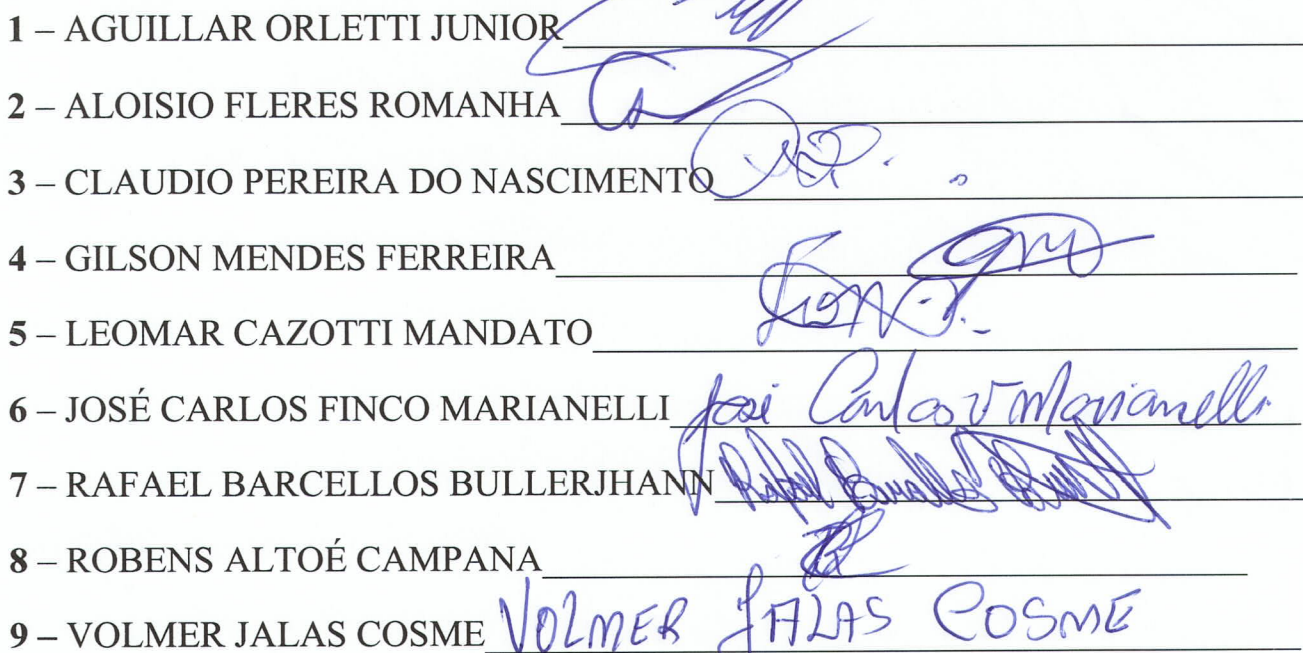 1 – AGUILLAR ORLETTI JUNIOR
2 – ALOISIO FLERES ROMANHA
3 – CLAUDIO PEREIRA DO NASCIMENTO
4 – GILSON MENDES FERREIRA
5 – LEOMAR CAZOTTI MANDATO
6 – JOSÉ CARLOS FINCO MARIANELLI José Carlos F Marianelli
7 – RAFAEL BARCELLOS BULLERJHANN Rafael
8 – ROBENS ALTOÉ CAMPANA
9 – VOLMER JALAS COSME VOLMER JALAS COSME